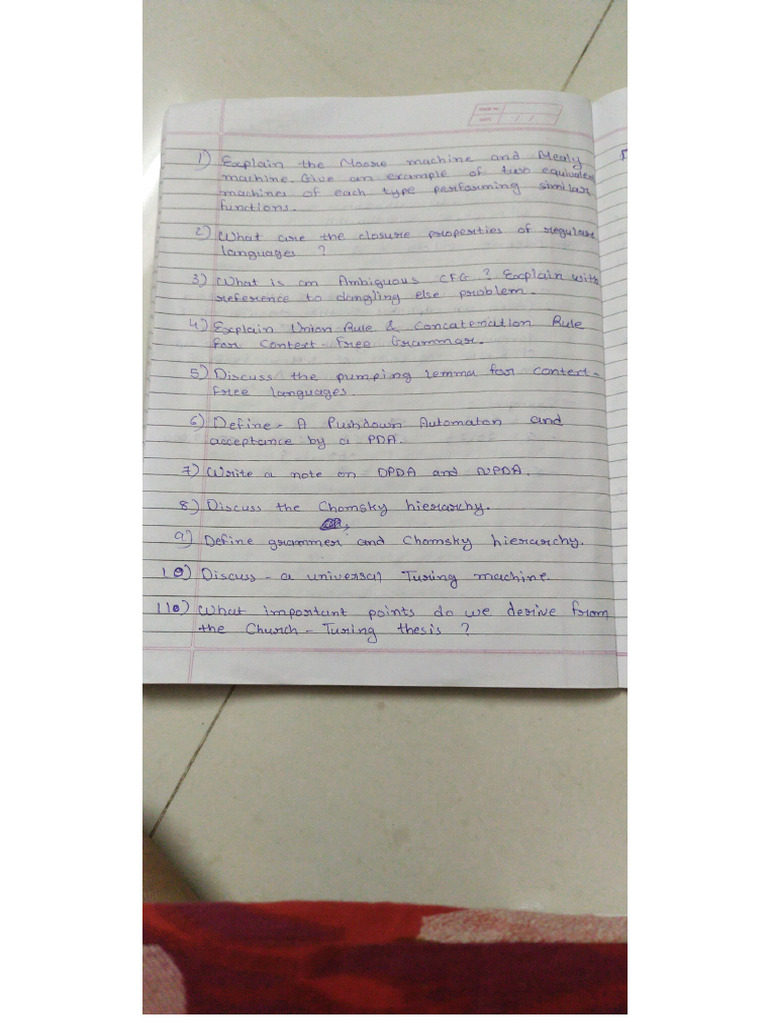 PAGE No.
DATE / /
1) Explain the Moore machine and Mealy
machine. Give an example of two equivalen
machines of each type performing similar
functions.
2) What are the closure properties of regular
languages ?
3) What is an Ambiguous CFG ? Explain with
reference to dangling else problem.
4) Explain Union Rule & Concatenation Rule
for Context-Free Grammar.
5) Discuss the pumping lemma for context-
free languages.
6) Define - A Pushdown Automaton and
acceptance by a PDA.
7) Write a note on DPDA and NPDA.
8) Discuss the Chomsky hierarchy.
9) Define grammer and Chomsky hierarchy.
10) Discuss - a universal Turing machine.
110) What important points do we derive from
the Church - Turing thesis ?